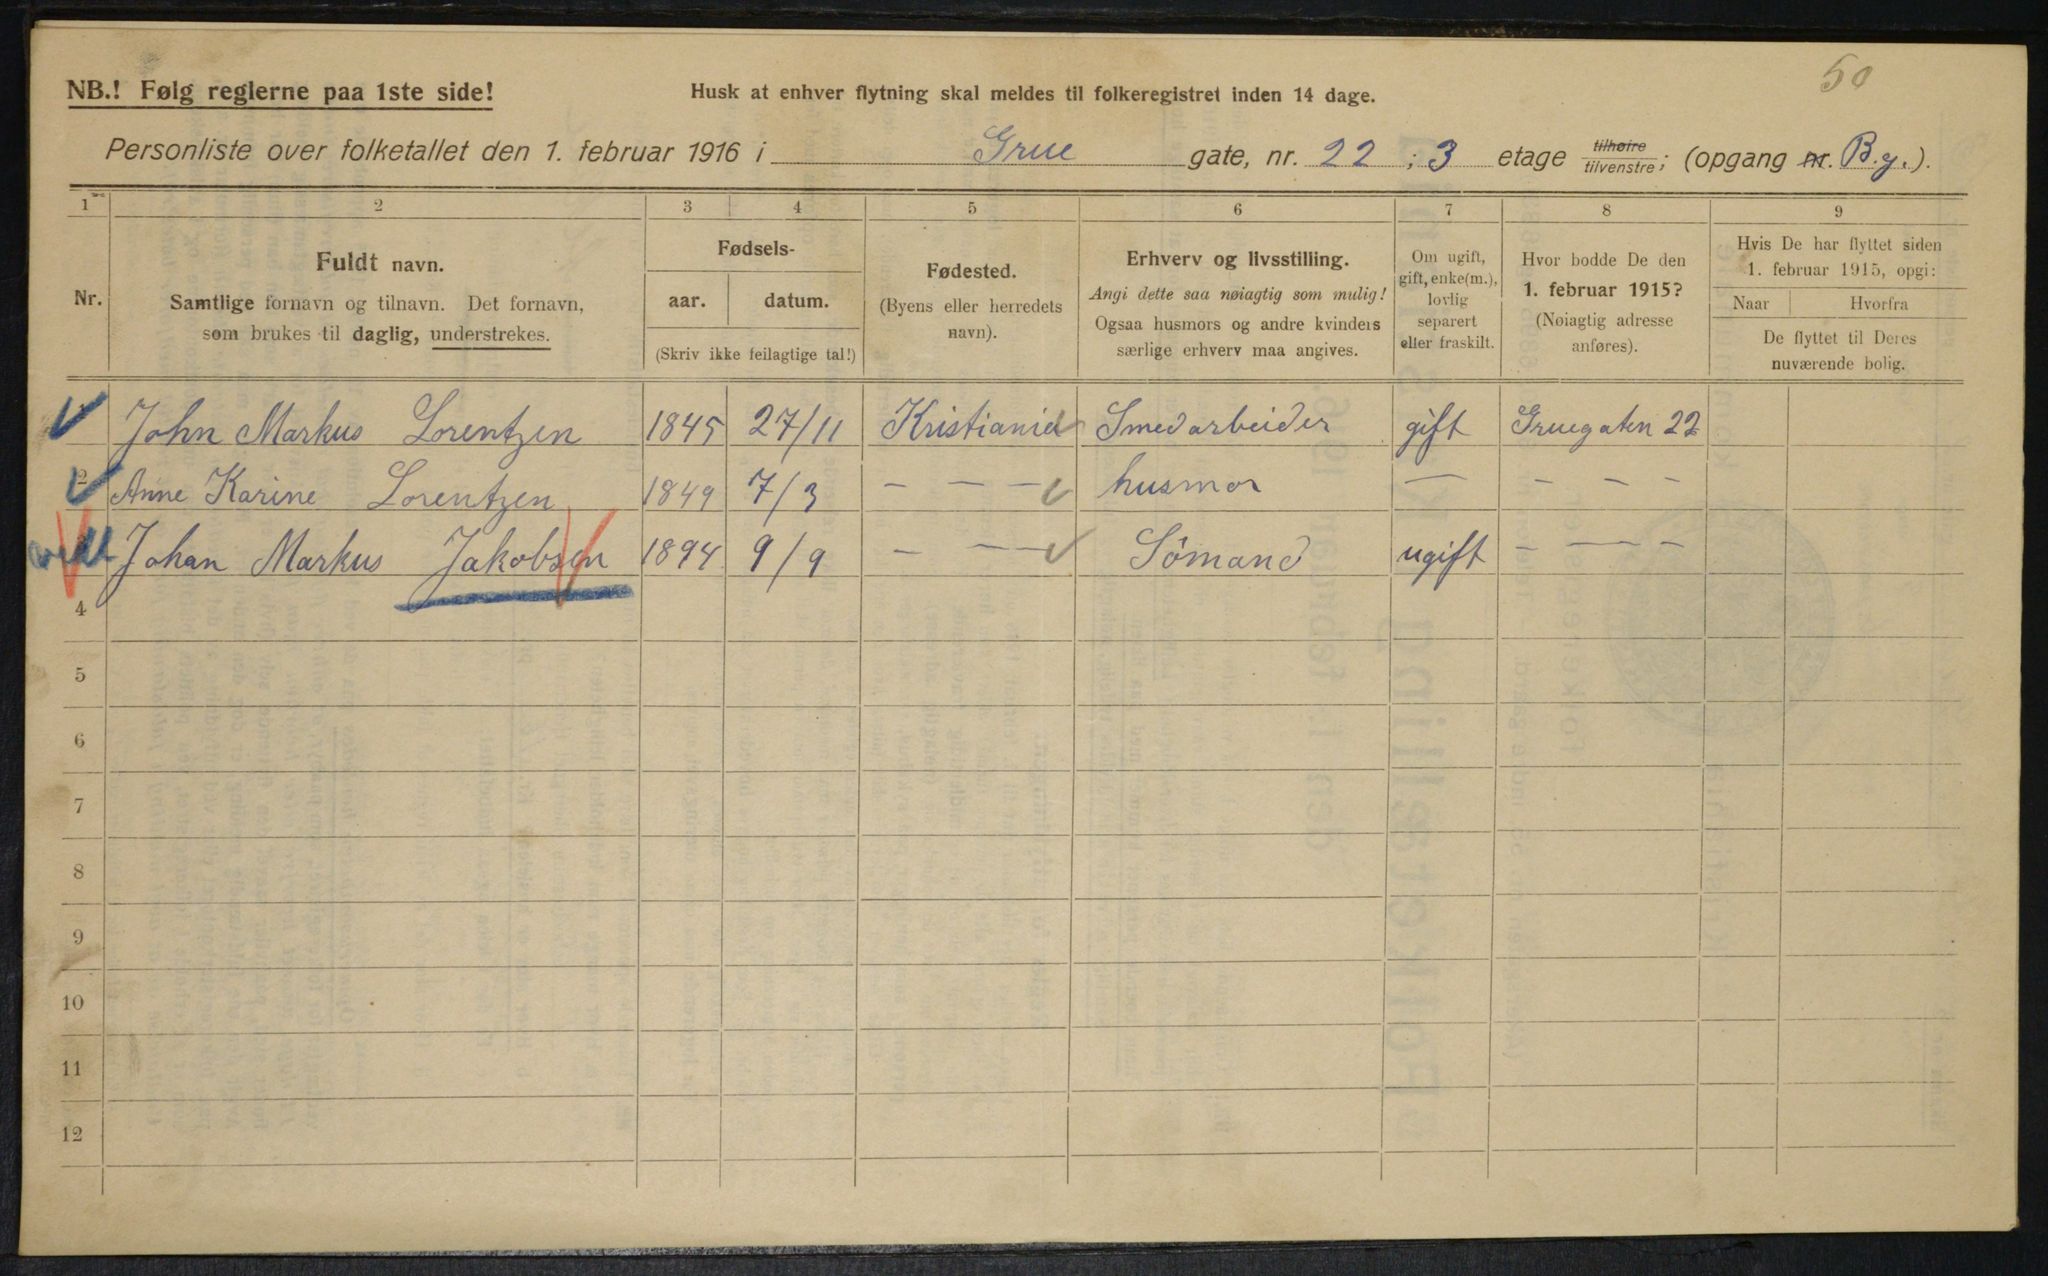 50
NB.! Følg reglerne paa 1ste side!
Husk at enhver flytning skal meldes til folkeregistret inden 14 dage.
Personliste over folketallet den 1. februar 1916 i Grue gate, nr. 22 ; 3 etage tilhøire tilvenstre; (opgang nr. B.g.).
1 2 3 4 5 6 7 8 9
Nr.
Fuldt navn.
Samtlige fornavn og tilnavn. Det fornavn,
som brukes til daglig, understrekes.
Fødsels-
aar. datum.
(Skriv ikke feilagtige tal!)
Fødested.
(Byens eller herredets
navn).
Erhverv og livsstilling.
Angi dette saa nøiagtig som mulig!
Ogsaa husmors og andre kvinders
særlige erhverv maa angives.
Om ugift,
gift, enke(m.),
lovlig
separert
eller fraskilt.
Hvor bodde De den
1. februar 1915?
(Nøiagtig adresse
anføres).
Hvis De har flyttet siden
1. februar 1915, opgi:
Naar Hvorfra
De flyttet til Deres
nuværende bolig.
1 John Markus Lorentzen 1845 27/11 Kristiania Smedarbeider gift Gruegaten 22
2 Anne Karine Lorentzen 1849 7/3 — — — husmor — — — —
Johan Markus Jakobsen 1894 9/9 — — — Sömand ugift — — — —
4
5
6
7
8
9
10
11
12